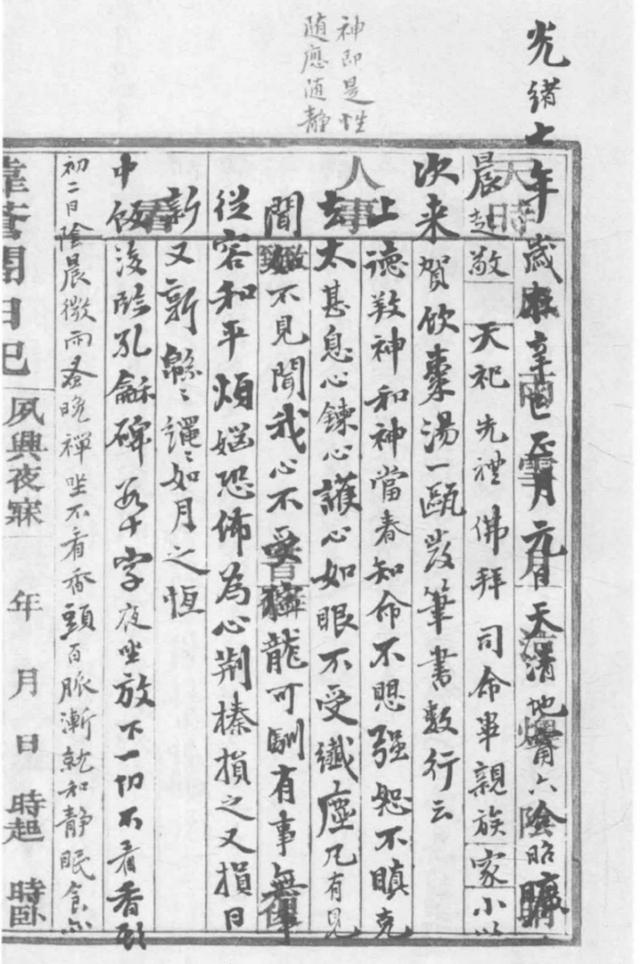 神即是性
随應随静
光緒七年歲在辛巳正月元日天清地甯六陰昭曠
晨起敬天祀先禮佛拜司命畢親族家小以
次来賀飲棗湯一甌發筆書数行云
上德敦神和神當春知命不思强恕不瞋克
去太甚息心鍊心護心如眼不受纖塵凡有見
聞如不見聞我心不受獰龍可馴有事無事
從容和平煩媼恐怖為心荆榛損之又損日
新又新緜緜繩繩如月之恆
中飯後臨孔龢碑若干字夜坐放下一切不看香頭
初二日陰晨微雨蚤晚禪坐不看香頭百脈漸就和静眠食亦
日記
夙興夜寐 年 月 日 時起 時卧
天時
人事